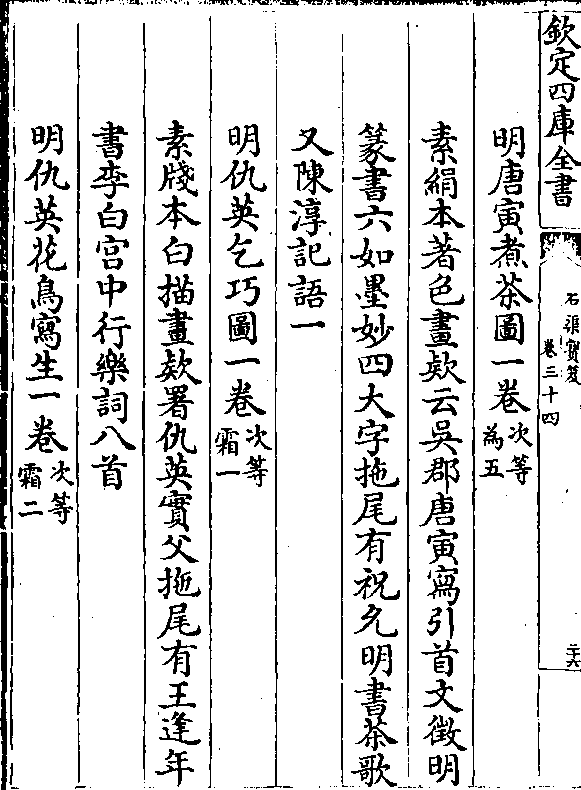 欽定四庫全書
石渠寶笈
卷三十四
二十六
明唐寅煮茶圖一卷次等為五
素絹本著色畫欵云吳郡唐寅寫引首文徵明
篆書六如墨妙四大字拖尾有祝允明書茶歌
又陳淳記語一
明仇英乞巧圖一卷次等霜一
素牋本白描畫欵署仇英實父拖尾有王逢年
書李白宮中行樂詞八首
明仇英花鳥寫生一卷次等霜二